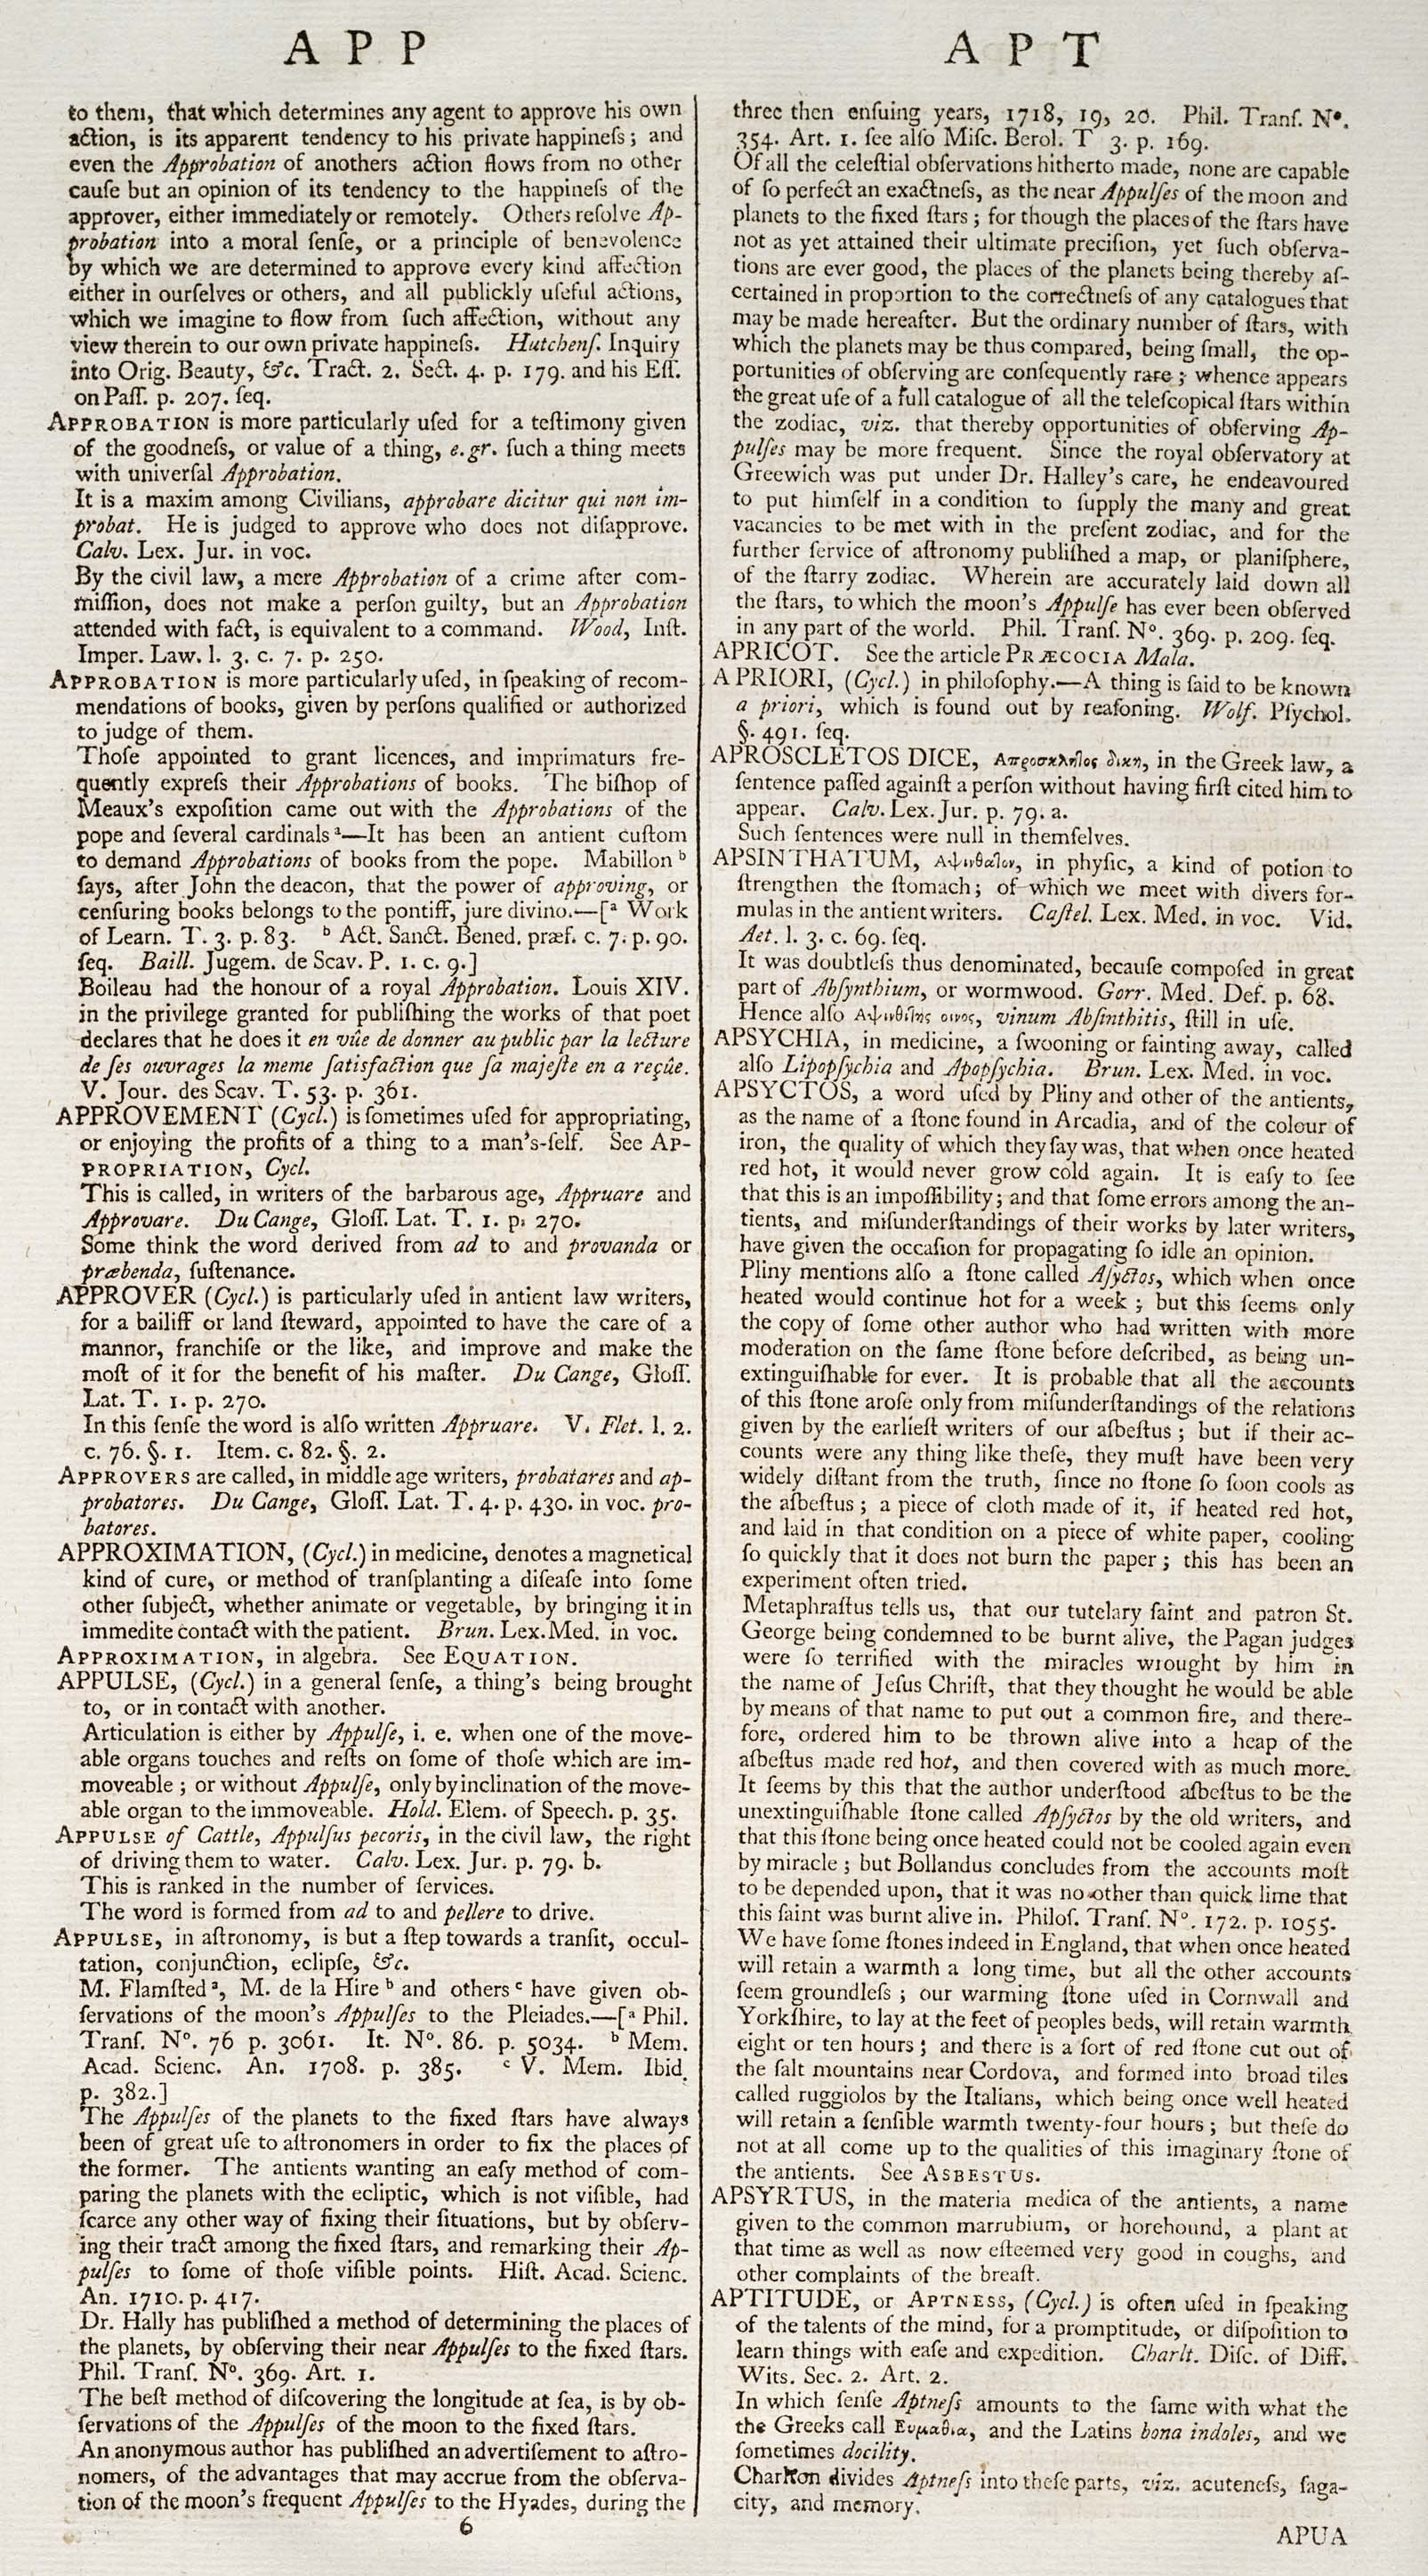 A P P
to them, that which determines any agent to approve his own
action, is its apparent tendency to his private happineſs; and
even the Approbation of anothers action flows from no other
cauſe but an opinion of its tendency to the happineſs of the
approver, either immediately or remotely. Others reſolve Ap-
probation into a moral ſenſe, or a principle of benevolence
by which we are determined to approve every kind affection
either in ourſelves or others, and all publickly uſeful actions,
which we imagine to flow from ſuch affection, without any
view therein to our own private happineſs. Hutchenſ. Inquiry
into Orig. Beauty, &c. Tract. 2. Sect. 4. p. 179. and his Eſſ.
on Paſſ. p. 207. ſeq.
APPROBATION is more particularly uſed for a teſtimony given
of the goodneſs, or value of a thing, e. gr. ſuch a thing meets
with univerſal Approbation.
It is a maxim among Civilians, approbare dicitur qui non im-
probat. He is judged to approve who does not diſapprove.
Calv. Lex. Jur. in voc.
By the civil law, a mere Approbation of a crime after com-
miſſion, does not make a perſon guilty, but an Approbation
attended with fact, is equivalent to a command. Wood, Inſt.
Imper. Law. l. 3. c. 7. p. 250.
APPROBATION is more particularly uſed, in ſpeaking of recom-
mendations of books, given by perſons qualified or authorized
to judge of them.
Thoſe appointed to grant licences, and imprimaturs fre-
quently expreſs their Approbations of books. The biſhop of
Meaux's expoſition came out with the Approbations of the
pope and ſeveral cardinals ᵃ—It has been an antient cuſtom
to demand Approbations of books from the pope. Mabillon ᵇ
ſays, after John the deacon, that the power of approving, or
cenſuring books belongs to the pontiff, jure divino.—[ᵃ Work
of Learn. T. 3. p. 83. ᵇ Act. Sanct. Bened. præf. c. 7. p. 90.
ſeq. Baill. Jugem. de Scav. P. 1. c. 9.]
Boileau had the honour of a royal Approbation. Louis XIV.
in the privilege granted for publiſhing the works of that poet
declares that he does it en vûe de donner au public par la lecture
de ſes ouvrages la meme ſatisfaction que ſa majeſte en a reçûe.
V. Jour. des Scav. T. 53. p. 361.
APPROVEMENT (Cycl.) is ſometimes uſed for appropriating,
or enjoying the profits of a thing to a man's-ſelf. See AP-
PROPRIATION, Cycl.
This is called, in writers of the barbarous age, Appruare and
Approvare. Du Cange, Gloſſ. Lat. T. 1. p. 270.
Some think the word derived from ad to and provanda or
præbenda, ſuſtenance.
APPROVER (Cycl.) is particularly uſed in antient law writers,
for a bailiff or land ſteward, appointed to have the care of a
mannor, franchiſe or the like, and improve and make the
moſt of it for the benefit of his maſter. Du Cange, Gloſſ.
Lat. T. 1. p. 270.
In this ſenſe the word is alſo written Appruare. V. Flet. l. 2.
c. 76. §. 1. Item. c. 82. §. 2.
APPROVERS are called, in middle age writers, probatares and ap-
probatores. Du Cange, Gloſſ. Lat. T. 4. p. 430. in voc. pro-
batores.
APPROXIMATION, (Cycl.) in medicine, denotes a magnetical
kind of cure, or method of tranſplanting a diſeaſe into ſome
other ſubject, whether animate or vegetable, by bringing it in
immedite contact with the patient. Brun. Lex. Med. in voc.
APPROXIMATION, in algebra. See EQUATION.
APPULSE, (Cycl.) in a general ſenſe, a thing's being brought
to, or in contact with another.
Articulation is either by Appulſe, i. e. when one of the move-
able organs touches and reſts on ſome of thoſe which are im-
moveable; or without Appulſe, only by inclination of the move-
able organ to the immoveable. Hold. Elem. of Speech. p. 35.
APPULSE of Cattle, Appulſus pecoris, in the civil law, the right
of driving them to water. Calv. Lex. Jur. p. 79. b.
This is ranked in the number of ſervices.
The word is formed from ad to and pellere to drive.
APPULSE, in aſtronomy, is but a ſtep towards a tranſit, occul-
tation, conjunction, eclipſe, &c.
M. Flamſted ᵃ, M. de la Hire ᵇ and others ᶜ have given ob-
ſervations of the moon's Appulſes to the Pleiades.—[ᵃ Phil.
Tranſ. Nº. 76 p. 3061. It. Nº. 86. p. 5034. ᵇ Mem.
Acad. Scienc. An. 1708. p. 385. ᶜ V. Mem. Ibid.
p. 382.]
The Appulſes of the planets to the fixed ſtars have always
been of great uſe to aſtronomers in order to fix the places of
the former. The antients wanting an eaſy method of com-
paring the planets with the ecliptic, which is not viſible, had
ſcarce any other way of fixing their ſituations, but by obſerv-
ing their tract among the fixed ſtars, and remarking their Ap-
pulſes to ſome of thoſe viſible points. Hiſt. Acad. Scienc.
An. 1710. p. 417.
Dr. Hally has publiſhed a method of determining the places of
the planets, by obſerving their near Appulſes to the fixed ſtars.
Phil. Tranſ. Nº. 369. Art. 1.
The beſt method of diſcovering the longitude at ſea, is by ob-
ſervations of the Appulſes of the moon to the fixed ſtars.
An anonymous author has publiſhed an advertiſement to aſtro-
nomers, of the advantages that may accrue from the obſerva-
tion of the moon's frequent Appulſes to the Hyades, during the
6
A P T
three then enſuing years, 1718, 19, 20. Phil. Tranſ. Nº.
354. Art. 1. ſee alſo Miſc. Berol. T 3. p. 169.
Of all the celeſtial obſervations hitherto made, none are capable
of ſo perfect an exactneſs, as the near Appulſes of the moon and
planets to the fixed ſtars; for though the places of the ſtars have
not as yet attained their ultimate preciſion, yet ſuch obſerva-
tions are ever good, the places of the planets being thereby aſ-
certained in proportion to the correctneſs of any catalogues that
may be made hereafter. But the ordinary number of ſtars, with
which the planets may be thus compared, being ſmall, the op-
portunities of obſerving are conſequently rare; whence appears
the great uſe of a full catalogue of all the teleſcopical ſtars within
the zodiac, viz. that thereby opportunities of obſerving Ap-
pulſes may be more frequent. Since the royal obſervatory at
Greewich was put under Dr. Halley's care, he endeavoured
to put himſelf in a condition to ſupply the many and great
vacancies to be met with in the preſent zodiac, and for the
further ſervice of aſtronomy publiſhed a map, or planiſphere,
of the ſtarry zodiac. Wherein are accurately laid down all
the ſtars, to which the moon's Appulſe has ever been obſerved
in any part of the world. Phil. Tranſ. Nº. 369. p. 209. ſeq.
APRICOT. See the article PRÆCOCIA Mala.
A PRIORI, (Cycl.) in philoſophy.—A thing is ſaid to be known
a priori, which is found out by reaſoning. Wolf. Pſychol.
§. 491. ſeq.
APROSCLETOS DICE, Απροσκληϊος δικη, in the Greek law, a
ſentence paſſed againſt a perſon without having firſt cited him to
appear. Calv. Lex. Jur. p. 79. a.
Such ſentences were null in themſelves.
APSINTHATUM, Αψινθαϊον, in phyſic, a kind of potion to
ſtrengthen the ſtomach; of which we meet with divers for-
mulas in the antient writers. Caſtel. Lex. Med. in voc. Vid.
Aet. l. 3. c. 69. ſeq.
It was doubtleſs thus denominated, becauſe compoſed in great
part of Abſynthium, or wormwood. Gorr. Med. Def. p. 68.
Hence alſo Αψινθίτης οινος, vinum Abſinthitis, ſtill in uſe.
APSYCHIA, in medicine, a ſwooning or fainting away, called
alſo Lipopſychia and Apopſychia. Brun. Lex. Med. in voc.
APSYCTOS, a word uſed by Pliny and other of the antients,
as the name of a ſtone found in Arcadia, and of the colour of
iron, the quality of which they ſay was, that when once heated
red hot, it would never grow cold again. It is eaſy to ſee
that this is an impoſſibility; and that ſome errors among the an-
tients, and miſunderſtandings of their works by later writers,
have given the occaſion for propagating ſo idle an opinion.
Pliny mentions alſo a ſtone called Aſyctos, which when once
heated would continue hot for a week; but this ſeems only
the copy of ſome other author who had written with more
moderation on the ſame ſtone before deſcribed, as being un-
extinguiſhable for ever. It is probable that all the accounts
of this ſtone aroſe only from miſunderſtandings of the relations
given by the earlieſt writers of our aſbeſtus; but if their ac-
counts were any thing like theſe, they muſt have been very
widely diſtant from the truth, ſince no ſtone ſo ſoon cools as
the aſbeſtus; a piece of cloth made of it, if heated red hot,
and laid in that condition on a piece of white paper, cooling
ſo quickly that it does not burn the paper; this has been an
experiment often tried.
Metaphraſtus tells us, that our tutelary ſaint and patron St.
George being condemned to be burnt alive, the Pagan judges
were ſo terrified with the miracles wrought by him in
the name of Jeſus Chriſt, that they thought he would be able
by means of that name to put out a common fire, and there-
fore, ordered him to be thrown alive into a heap of the
aſbeſtus made red hot, and then covered with as much more.
It ſeems by this that the author underſtood aſbeſtus to be the
unextinguiſhable ſtone called Apſyctos by the old writers, and
that this ſtone being once heated could not be cooled again even
by miracle; but Bollandus concludes from the accounts moſt
to be depended upon, that it was no other than quick lime that
this ſaint was burnt alive in. Philoſ. Tranſ. Nº. 172. p. 1055.
We have ſome ſtones indeed in England, that when once heated
will retain a warmth a long time, but all the other accounts
ſeem groundleſs; our warming ſtone uſed in Cornwall and
Yorkſhire, to lay at the feet of peoples beds, will retain warmth
eight or ten hours; and there is a ſort of red ſtone cut out of
the ſalt mountains near Cordova, and formed into broad tiles
called ruggiolos by the Italians, which being once well heated
will retain a ſenſible warmth twenty-four hours; but theſe do
not at all come up to the qualities of this imaginary ſtone of
the antients. See ASBESTUS.
APSYRTUS, in the materia medica of the antients, a name
given to the common marrubium, or horehound, a plant at
that time as well as now eſteemed very good in coughs, and
other complaints of the breaſt.
APTITUDE, or APTNESS, (Cycl.) is often uſed in ſpeaking
of the talents of the mind, for a promptitude, or diſpoſition to
learn things with eaſe and expedition. Charlt. Diſc. of Diff.
Wits. Sec. 2. Art. 2.
In which ſenſe Aptneſs amounts to the ſame with what the
the Greeks call Ευμαθια, and the Latins bona indoles, and we
ſometimes docility.
Charlton divides Aptneſs into theſe parts, viz. acuteneſs, ſaga-
city, and memory.
APUA